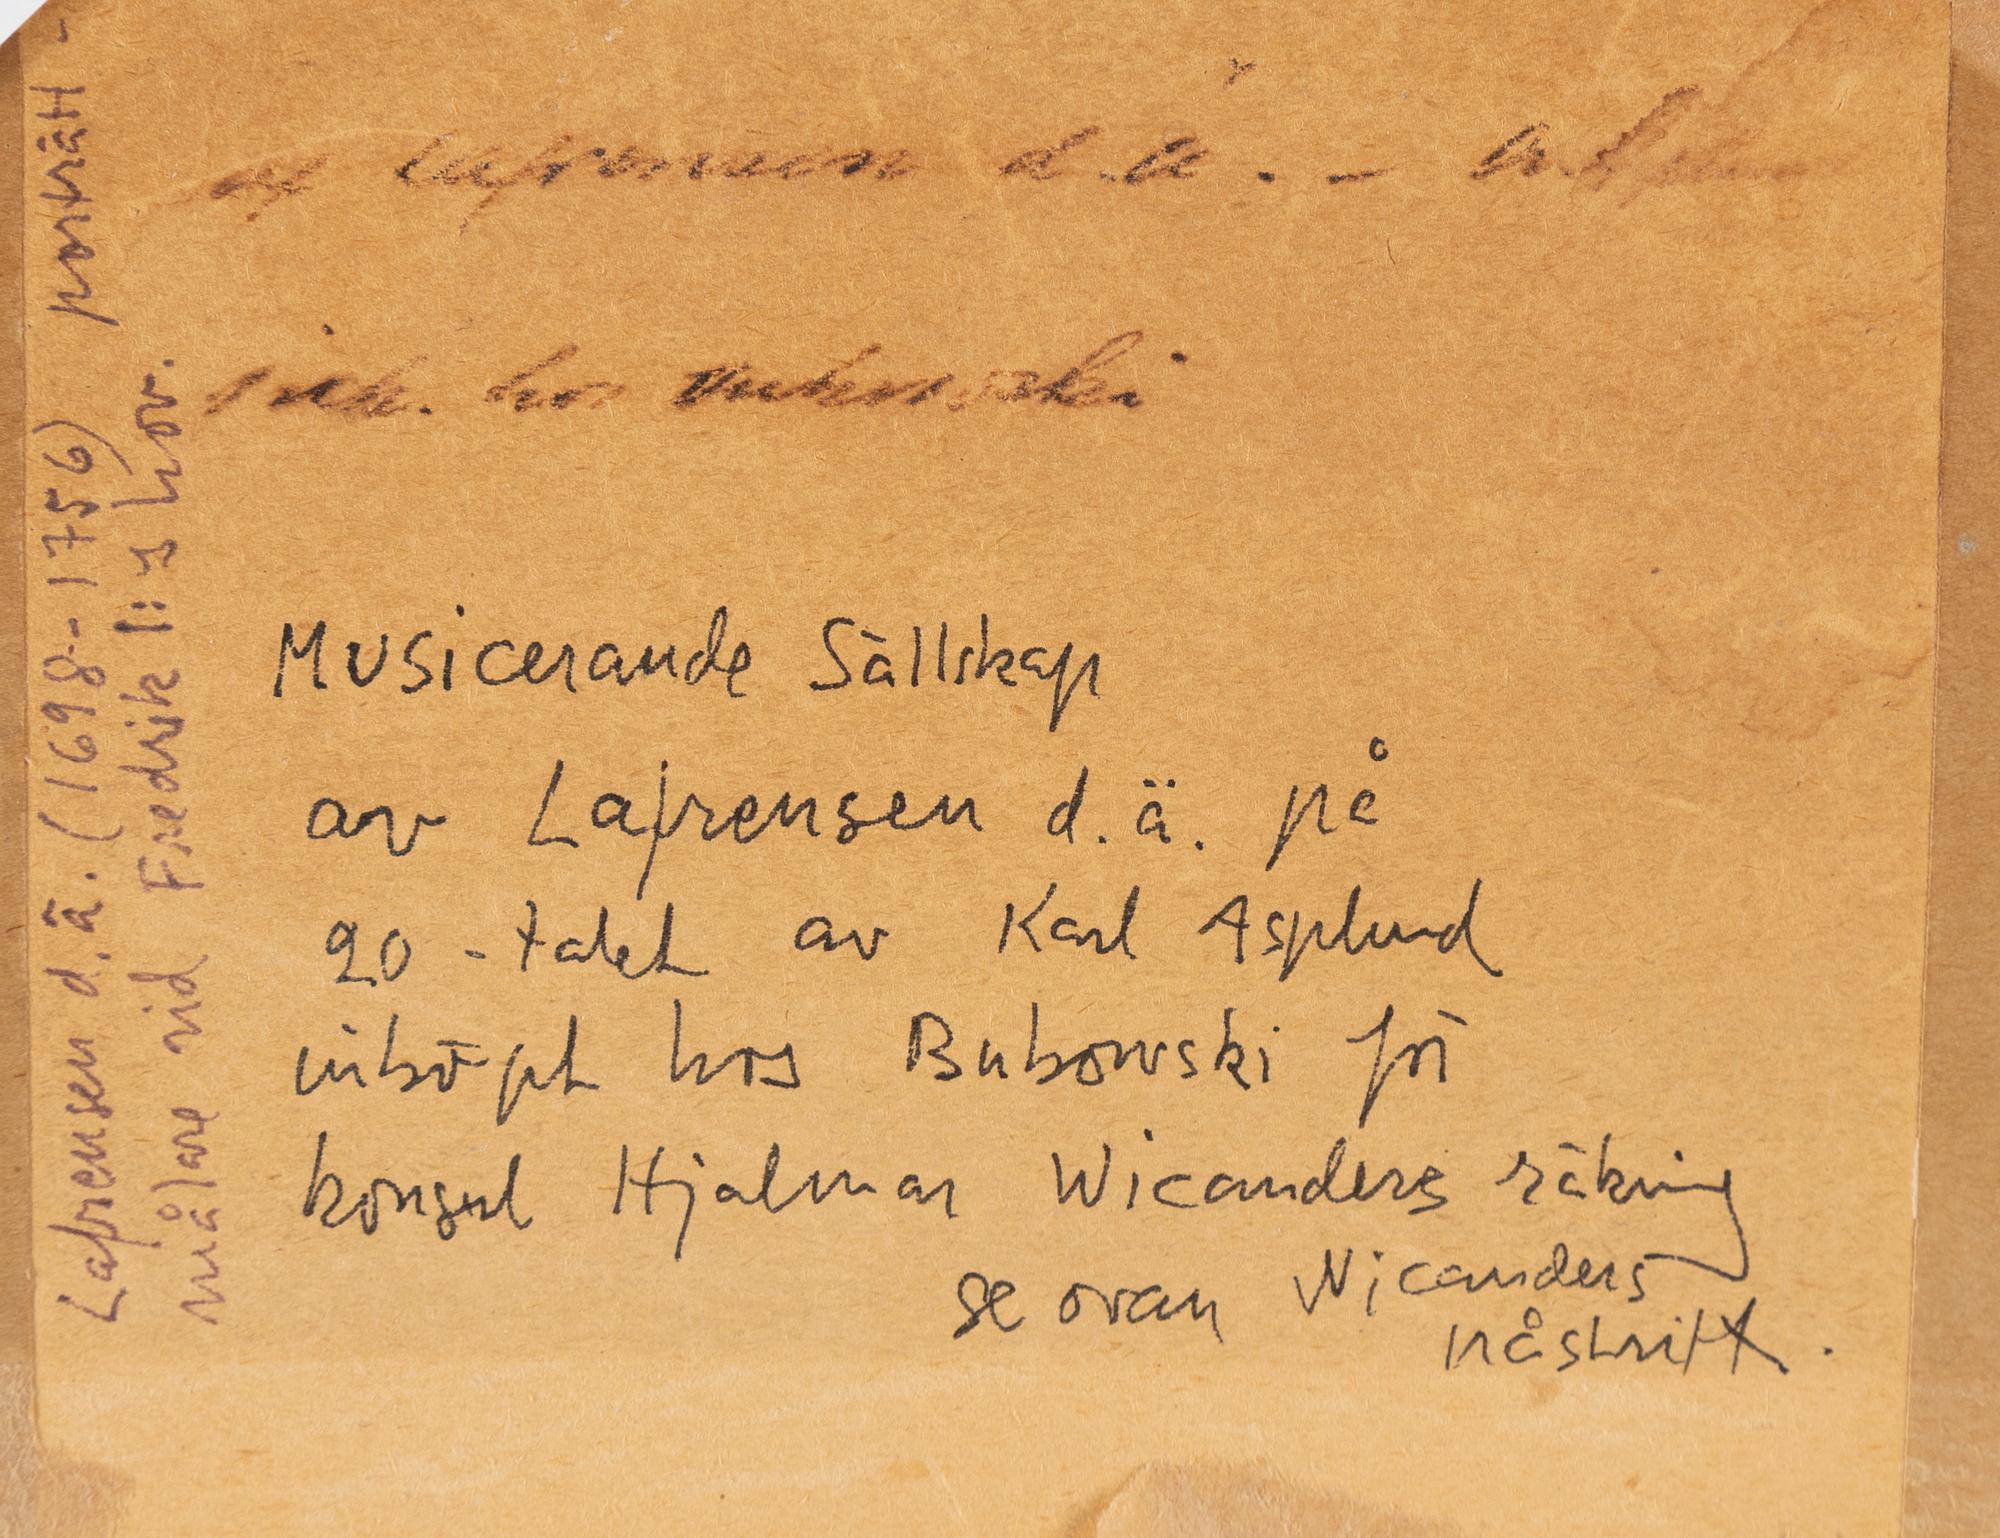 av Lafrensen d.ä. -
ink. hos Bukowski
Musicerande Sällskap
av Lafrensen d.ä. på
20-talet av Karl Asplund
inköpt hos Bukowski för
konsul Hjalmar Wicanders räkning
se ovan Wicanders
påskrift.
Lafrensen d.ä. (1698-1756) porträtt-
målare vid Fredrik I:s hov.